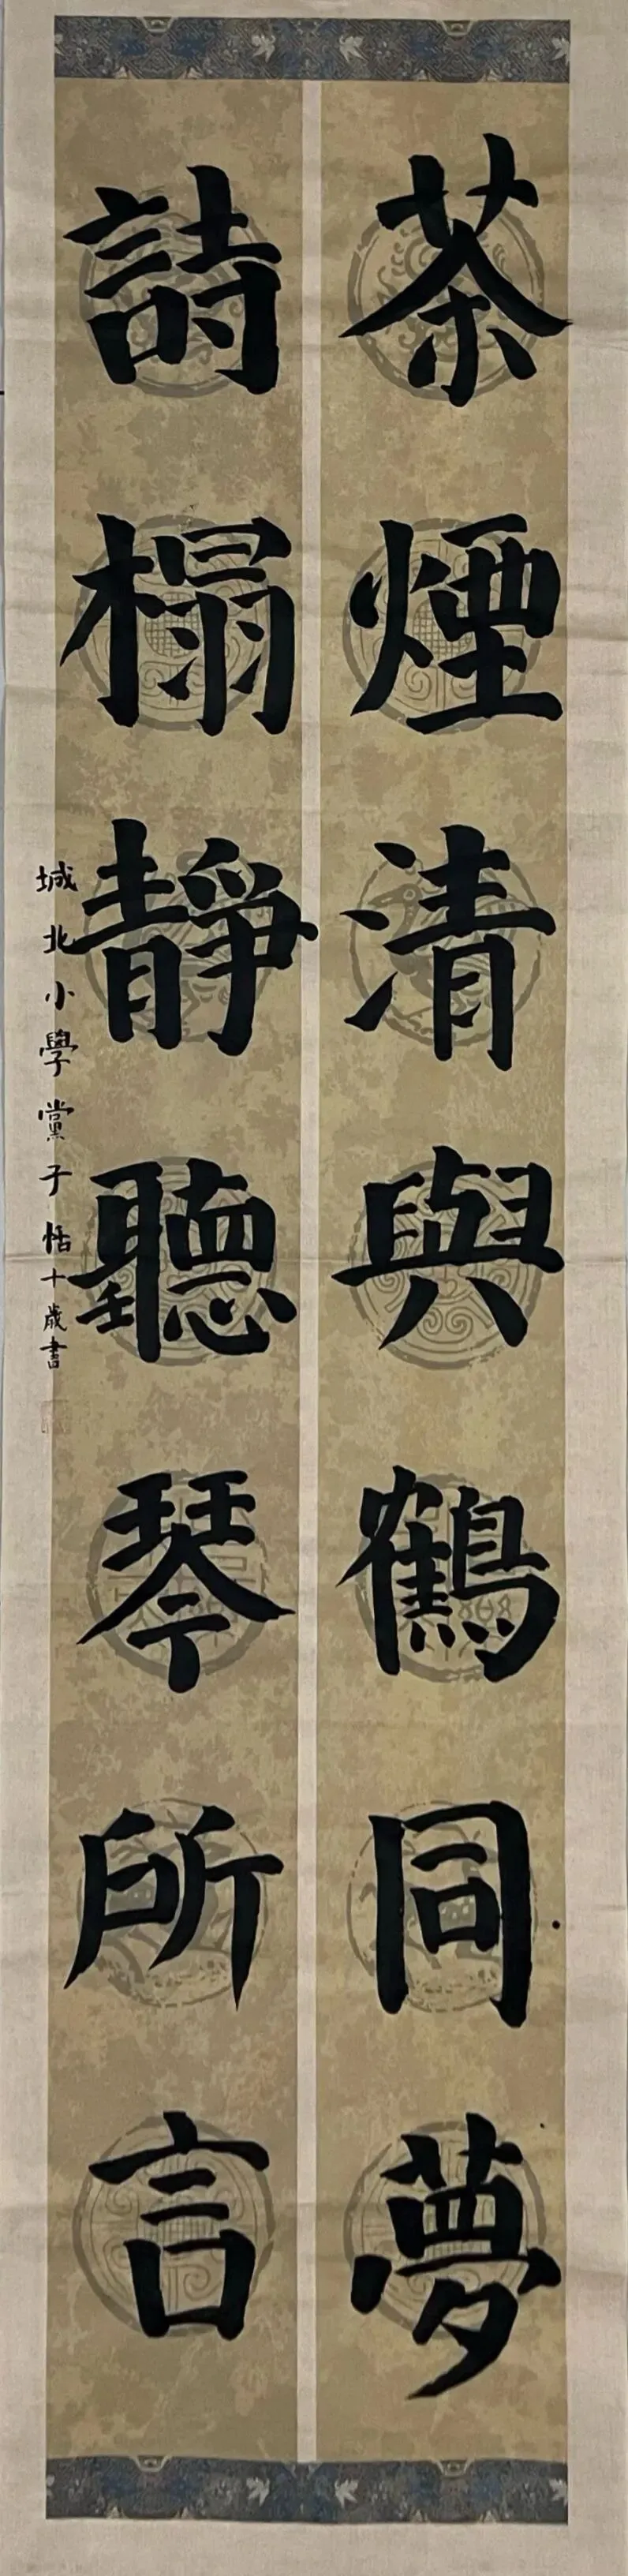 茶煙清與鶴同夢
詩榻靜聽琴所言
城北小學黨子恬十歲書